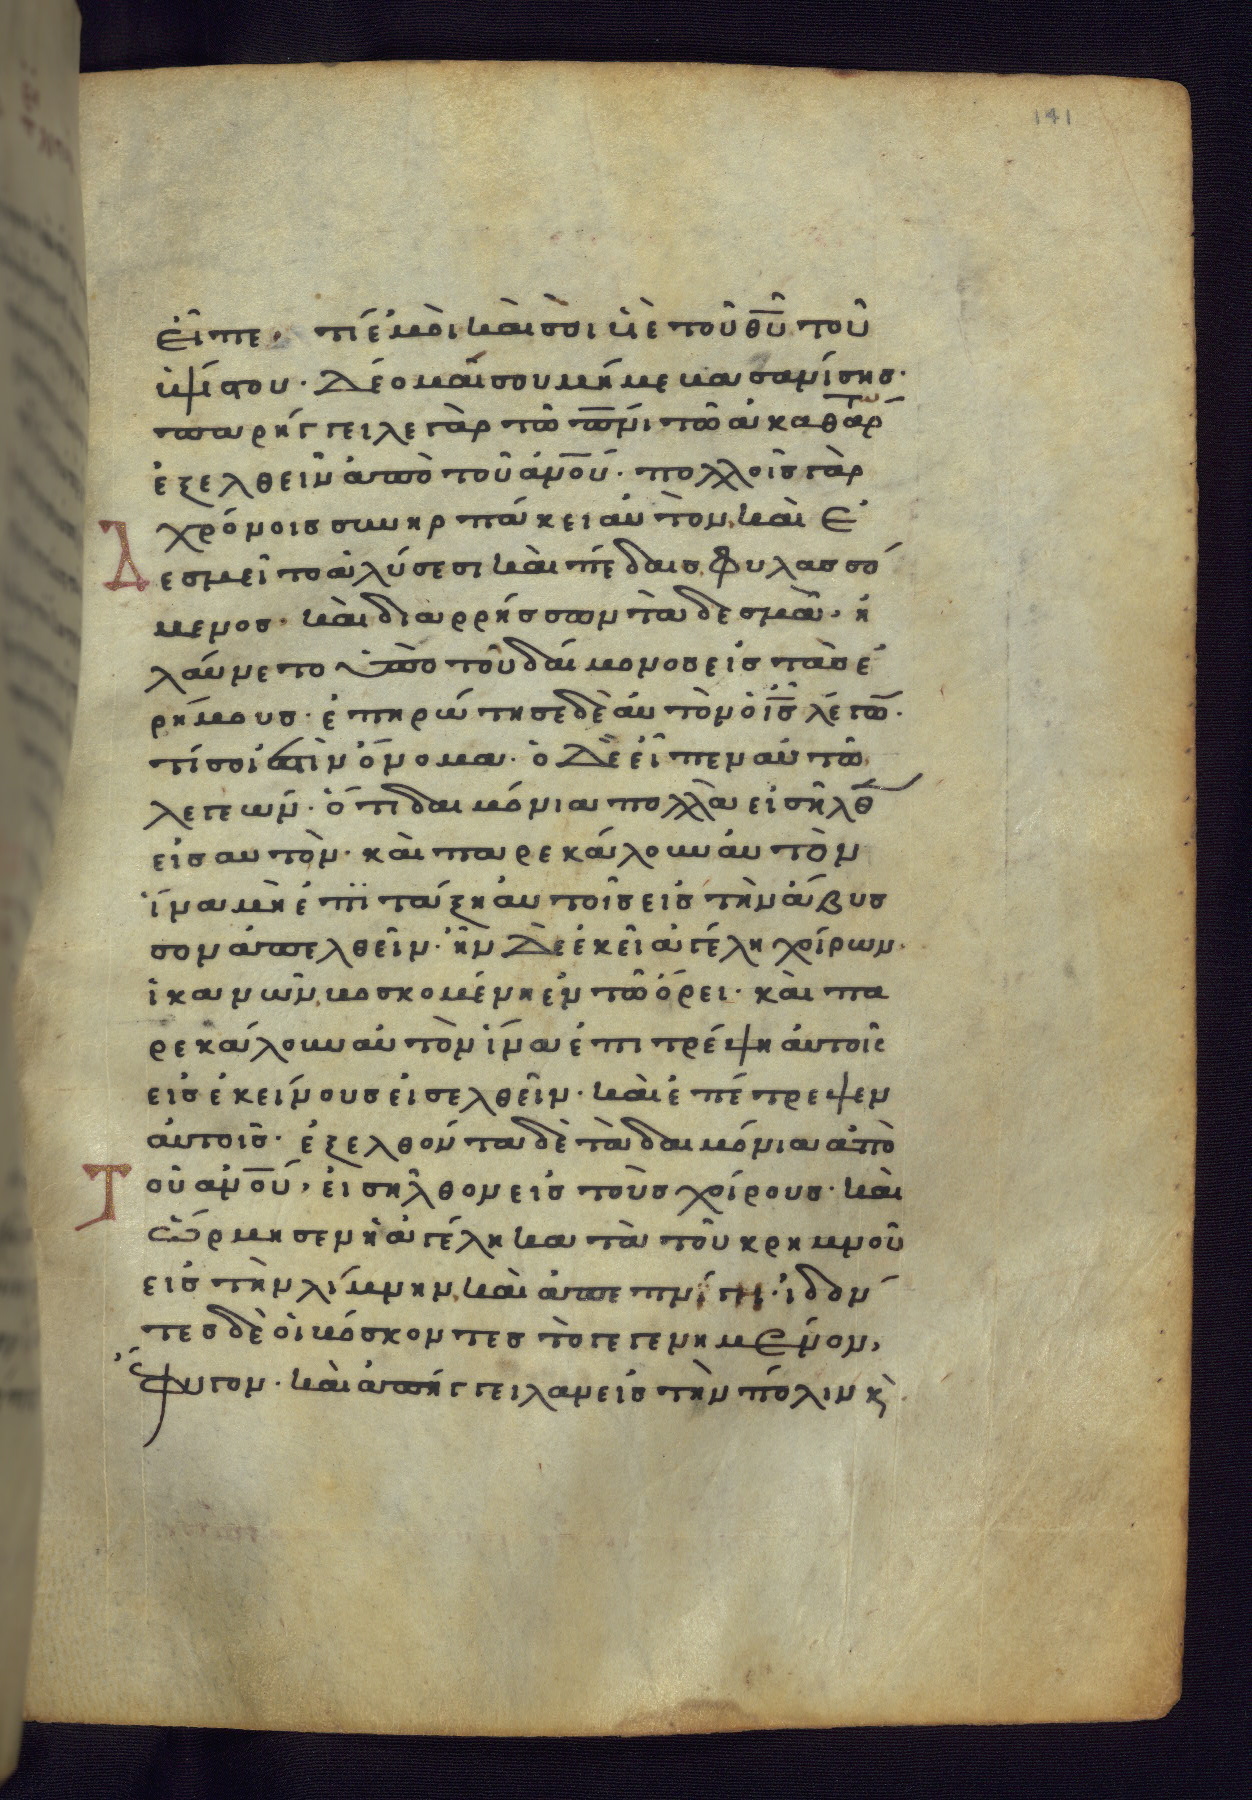 141
εἶπε· τί ἐμοὶ καὶ σοι υἱὲ τοῦ θῡ τοῦ
ὑψίστου· Δέομαί σου μή με βασανίσης·
παρήγγειλε γὰρ τῶ πνι τῶ ἀκαθάρτω
ἐξελθεῖν ἀπὸ τοῦ ἀνου· πολλοῖς γὰρ
χρόνοις συνηρπάκει αὐτον, καὶ ἐ
Δεσμεῖτο ἁλύσεσι καὶ πέδαις φυλασσό
μενος· καὶ διαρρήσσων τὰ δεσμὰ· ἠ
λαύνετο ὑπὸ τοῦ δαίμονος εἰς τὰς ἐ
ρήμους· ἐπηρώτησε δὲ αὐτὸν ὁ ις λέγων·
τί σοί ἐστιν ὄνομα· ὁ Δὲ εἶπεν αὐτῶ
λεγεών· ὅτι δαιμόνια πολλὰ εἰσῆλθεν
εἰς αυτὸν· καὶ παρεκάλουν αὐτὸν
ἵνα μὴ ἐπιτάξη αὐτοῖς εἰς τὴν ἄβυσ
σον ἀπελθεῖν· ἦν Δὲ ἐκεῖ ἀγέλη χοίρων
ἱκανῶν βοσκομένη ἐν τῶ ὄρει· καὶ πα
ρεκάλουν αὐτὸν ἵνα ἐπιτρέψη αὐτοῖς
εἰς ἐκείνους εἰσελθεῖν· καὶ ἐπέτρεψεν
αὐτοῖς· ἐξελθόντα δὲ τὰ δαιμόνια ἀπὸ
Τοῦ ἀνου, εἰσῆλθον εἰς τοὺς χοίρους· καὶ
ὥρμησεν ἡ ἀγέλη κατὰ τοῦ κρημνοῦ
εἰς τὴν λίμνην, καὶ ἀπεπνίγη· ἰδόν
τες δὲ οἱ βόσκοντες τὸ γεγενημένον,
ἔφυγον· καὶ ἀπήγγειλαν εἰς τὴν πόλιν κὶ